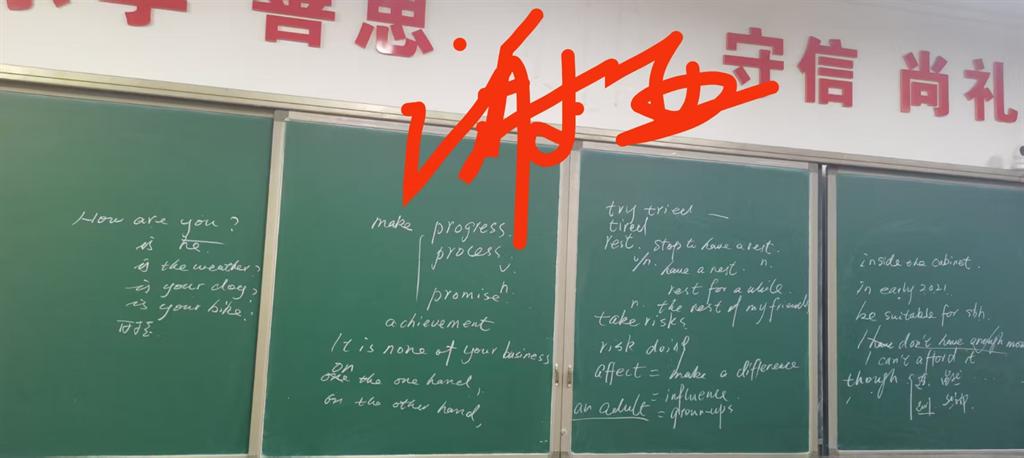 学 善思 守信 尚礼
谢
How are you?
is he
is the weather?
is your dog?
is your bike?
make progress.
process
v.
promise n.
achievement
It is none of your business
on
one the one hand,
on the other hand,
try tried —
tired
rest. stop to have a rest.
v/n. have a rest. n.
rest for a while
n. the rest of my friends
take risks
risk doing
affect = make a difference
= influence
an adult = grown-ups
inside the cabinet.
in early 2021
be suitable for sth.
I have don't have enough mon
I can't afford it
though